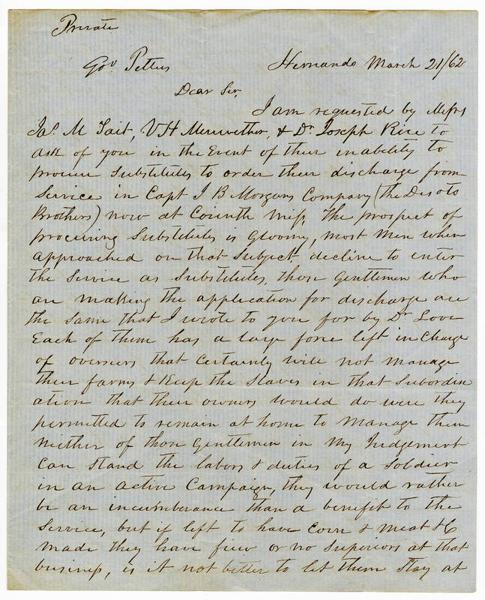 Private
Gov Pettus
Hernando March 21/62
Dear Sir,
I am requested by Messrs
Jas M Tait, V H Meriwether, & Dr Joseph Rice to
ask of you in the Event of their inability to
procure Substitutes to order their discharge from
Service in Capt J B Morgans Company (the Desoto
Brothers) now at Corinth Miss, The prospect of
procuring Substitutes is Gloomy, most men when
approached on that Subject decline to enter
the Service as Substitutes, those Gentlemen who
are making the application for discharge are
the same that I wrote to you for by Dr Love
Each of them has a large force left in Charge
of overseers that Certainly will not manage
their farms & Keep the Slaves in that Subordin
ation that their owners would do were they
permitted to remain at home to manage them
Neither of those Gentlemen in my Judgement
Can Stand the labors & duties of a Soldier
in an active Campaign, they would rather
be an incumberance than a benefit to the
Service, but if left to have Corn & Meat &c
made they have few or no Superiors at that
business, is it not better to let them Stay at